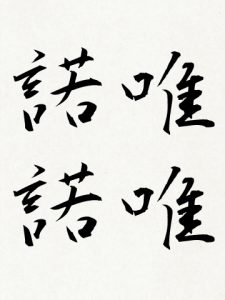 唯
唯
諾
諾